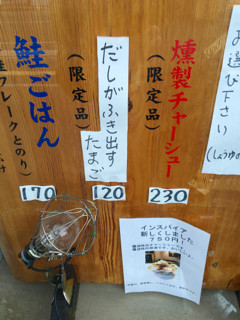 お選び下さい
(しょうゆ
燻製チャーシュー
(限定品)
230
だしがふき出す
たまご
(限定品)
120
鮭ごはん
170
鮭フレークとのり
インスパイア
新しくしました
750円!